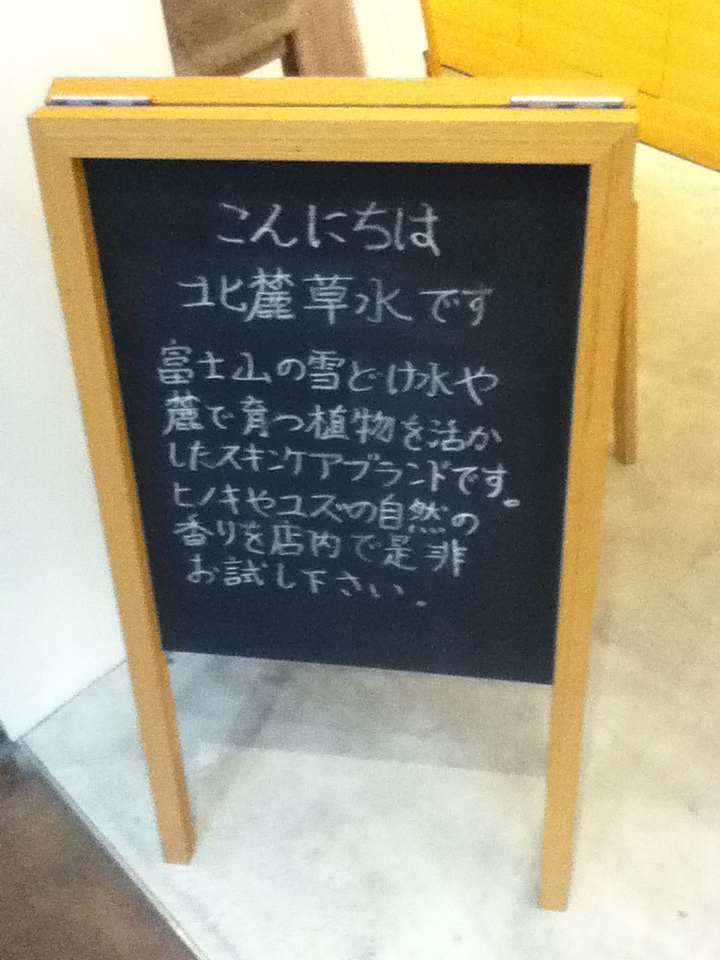 こんにちは
北麓草水です
富士山の雪どけ水や
麓で育つ植物を活か
したスキンケアブランドです。
ヒノキやユズの自然の
香りを店内で是非
お試し下さい。